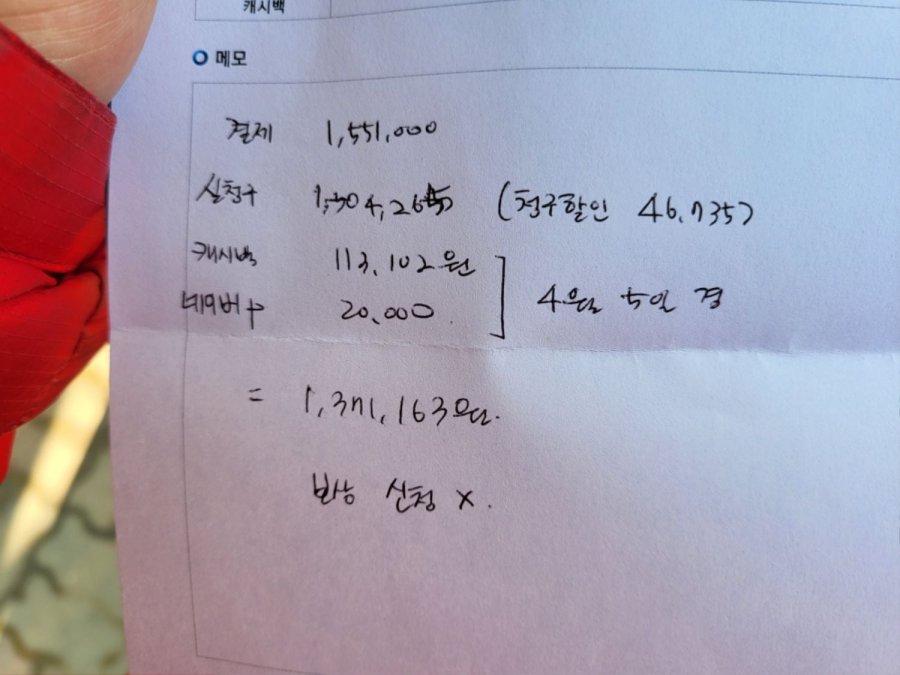 캐시백
메모
결제 1,551,000
실청구 1,504,265 (청구할인 46,735)
캐시백 113,102원
네이버 p 20,000
4월 5일 경
= 1,371,163원.
보상 신청 x.